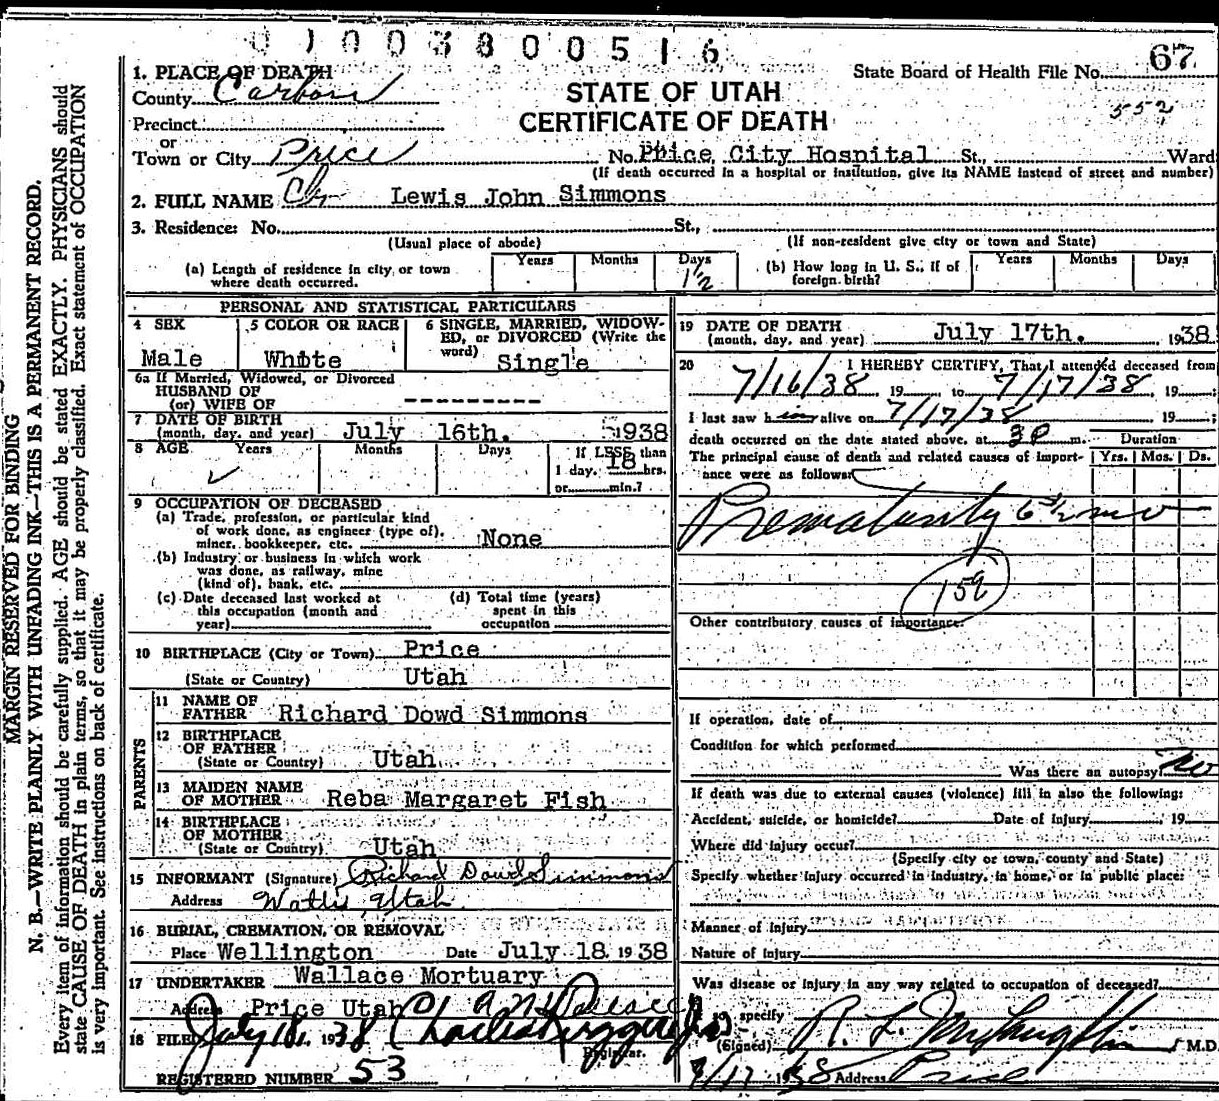 0 1 0 0 3 8 0 0 5 1 6
67
State Board of Health File No.
552
STATE OF UTAH
CERTIFICATE OF DEATH
1. PLACE OF DEATH
County Carbon
Precinct
or
Town or City Price No. Price City Hospital St., Ward
(If death occurred in a hospital or institution, give its NAME instead of street and number)
2. FULL NAME Lewis John Simmons
3. Residence: No. St.,
(Usual place of abode) (If non-resident give city or town and State)
(a) Length of residence in city or town where death occurred. Years Months Days 1 1/2
(b) How long in U. S., if of foreign birth? Years Months Days
PERSONAL AND STATISTICAL PARTICULARS
4 SEX
Male
5 COLOR OR RACE
White
6 SINGLE, MARRIED, WIDOW-
ED, or DIVORCED (Write the
word) Single
6a If Married, Widowed, or Divorced
HUSBAND OF
(or) WIFE OF ----------
7 DATE OF BIRTH
(month, day, and year) July 16th. 1938
8 AGE Years Months Days If LESS than
1 day, 18 hrs.
or min.?
9 OCCUPATION OF DECEASED
(a) Trade, profession, or particular kind
of work done, as engineer (type of),
miner, bookkeeper, etc. None
(b) Industry or business in which work
was done, as railway, mine
(kind of), bank, etc.
(c) Date deceased last worked at
this occupation (month and
year)
(d) Total time (years)
spent in this
occupation
10 BIRTHPLACE (City or Town) Price
(State or Country) Utah
PARENTS
11 NAME OF
FATHER Richard Dowd Simmons
12 BIRTHPLACE
OF FATHER
(State or Country) Utah
13 MAIDEN NAME
OF MOTHER Reba Margaret Fish
14 BIRTHPLACE
OF MOTHER
(State or Country) Utah
15 INFORMANT (Signature) Richard Dowd Simmons
Address Wattis, Utah
16 BURIAL, CREMATION, OR REMOVAL
Place Wellington Date July 18. 1938
17 UNDERTAKER Wallace Mortuary
Address Price Utah
18 FILED July 18, 1938
Registrar.
REGISTERED NUMBER 53
19 DATE OF DEATH
(month, day, and year) July 17th. 1938
20 I HEREBY CERTIFY, That I attended deceased from
7/16/38 19 to 7/17/38, 19 ;
I last saw him alive on 7/17/38 19 ;
death occurred on the date stated above, at 3 P m.
The principal cause of death and related causes of import-
ance were as follows:
Duration
Yrs. Mos. Ds.
Prematurity 6 1/2 mo
159
Other contributory causes of importance:
If operation, date of
Condition for which performed
Was there an autopsy? No
If death was due to external causes (violence) fill in also the following:
Accident, suicide, or homicide? Date of injury , 19
Where did injury occur?
(Specify city or town, county and State)
Specify whether injury occurred in industry, in home, or in public place:
Manner of injury
Nature of injury
Was disease or injury in any way related to occupation of deceased?
specify
(Signed) R. L. McLaughlin M.D.
7/17 1938 Address Price
MARGIN RESERVED FOR BINDING
N. B.—WRITE PLAINLY WITH UNFADING INK—THIS IS A PERMANENT RECORD.
Every item of information should be carefully supplied. AGE should be stated EXACTLY. PHYSICIANS should
state CAUSE OF DEATH in plain terms, so that it may be properly classified. Exact statement of OCCUPATION
is very important. See instructions on back of certificate.